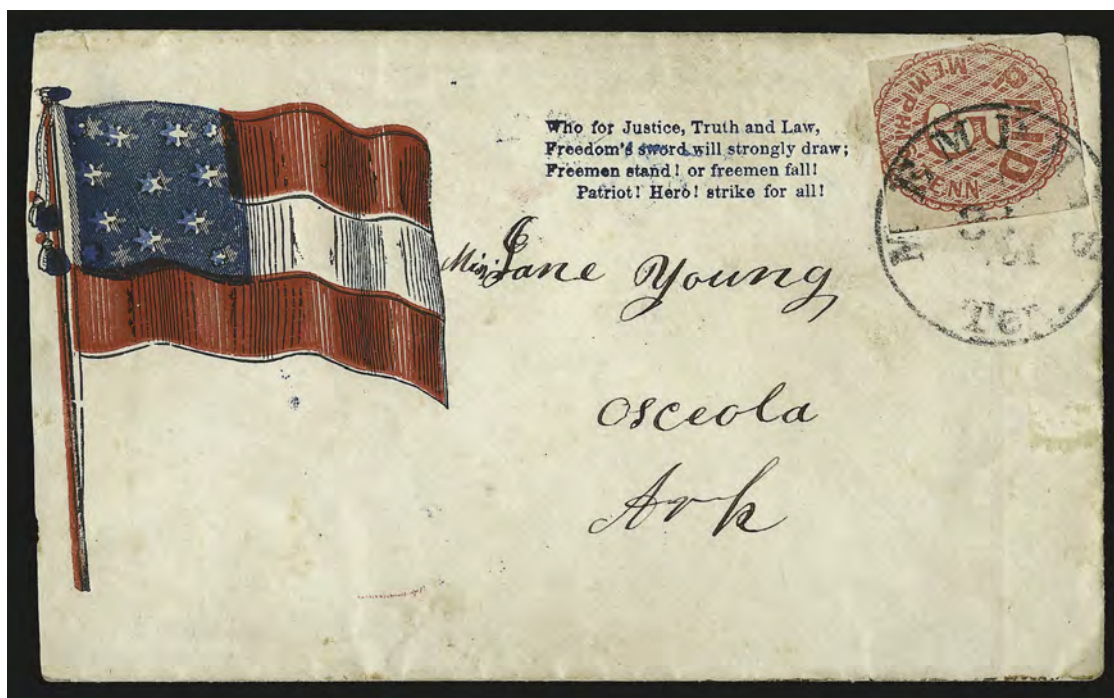 Who for Justice, Truth and Law,
Freedom's sword will strongly draw;
Freemen stand! or freemen fall!
Patriot! Hero! strike for all!
PAID
5
MEMPHIS
TENN
MEMPHIS
Ten.
Miss Jane Young
Osceola
Ark